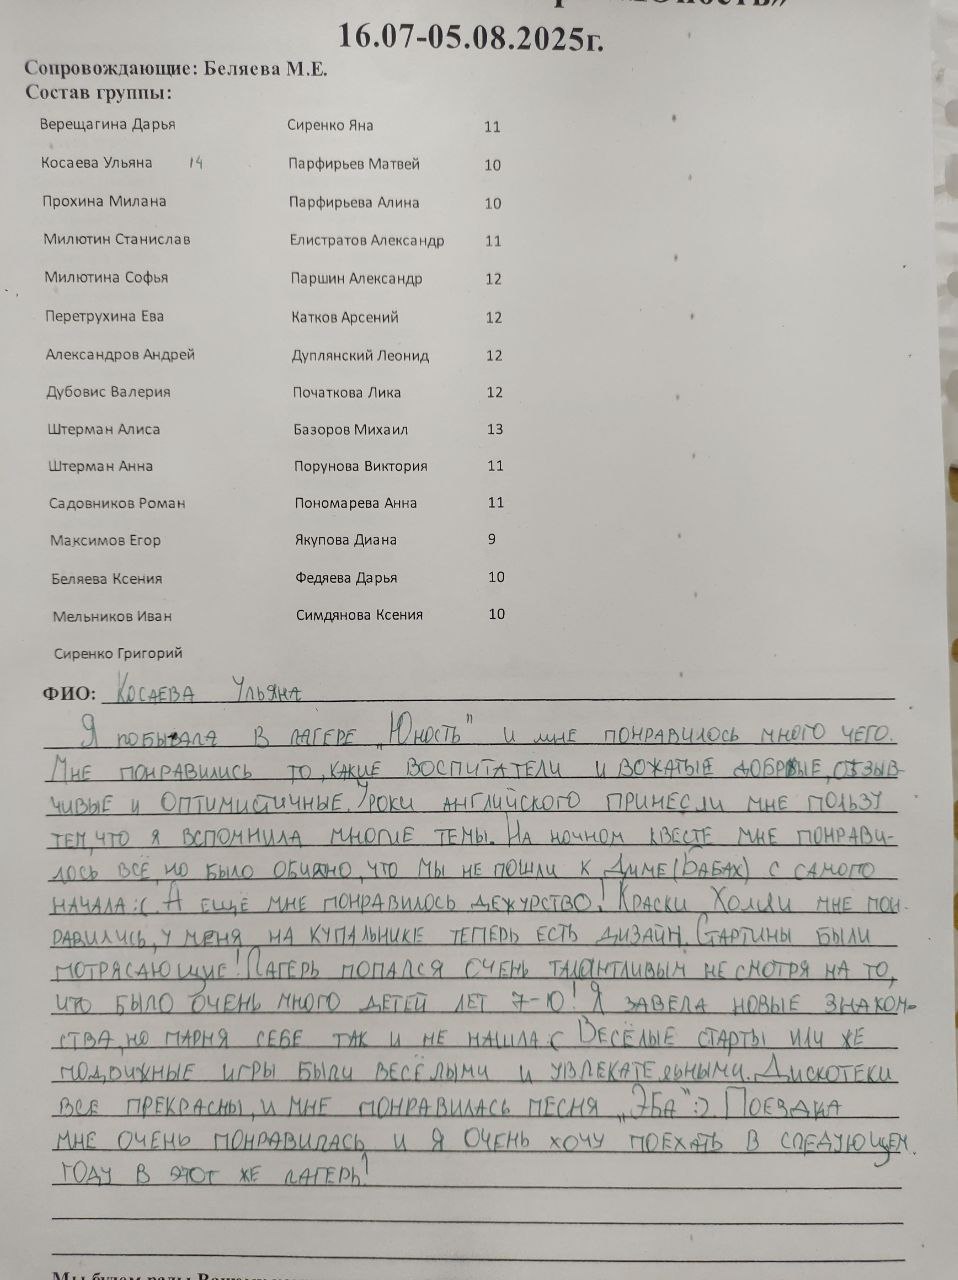 16.07-05.08.2025г.
Сопровождающие: Беляева М.Е.
Состав группы:
Верещагина Дарья Сиренко Яна 11
Косаева Ульяна 14 Парфирьев Матвей 10
Прохина Милана Парфирьева Алина 10
Милютин Станислав Елистратов Александр 11
Милютина Софья Паршин Александр 12
Перетрухина Ева Катков Арсений 12
Александров Андрей Дуплянский Леонид 12
Дубовис Валерия Початкова Лика 12
Штерман Алиса Базоров Михаил 13
Штерман Анна Порунова Виктория 11
Садовников Роман Пономарева Анна 11
Максимов Егор Якупова Диана 9
Беляева Ксения Федяева Дарья 10
Мельников Иван Симдянова Ксения 10
Сиренко Григорий
ФИО: Косаева Ульяна
Я побывала в лагере „Юность" и мне понравилось много чего.
Мне понравились то, какие воспитатели и вожатые добрые, отзыв-
чивые и оптимистичные. Уроки английского принесли мне пользу
тем, что я вспомнила многие темы. На ночном квесте мне понрави-
лось всё, но было обидно, что мы не пошли к Диме (Бабах) с самого
начала :( А ещё мне понравилось дежурство! Краски Холли мне пон-
равились, у меня на купальнике теперь есть дизайн. Стартины были
потрясающие! Лагерь попался очень талантливым не смотря на то,
что было очень много детей лет 7-10! Я завела новые знаком-
ства, но парня себе так и не нашла :( Весёлые старты или же
подвижные игры были весёлыми и увлекательными. Дискотеки
все прекрасны, и мне понравилась песня „Эба" :) Поездка
мне очень понравилась и я очень хочу поехать в следующем
году в этот же лагерь!